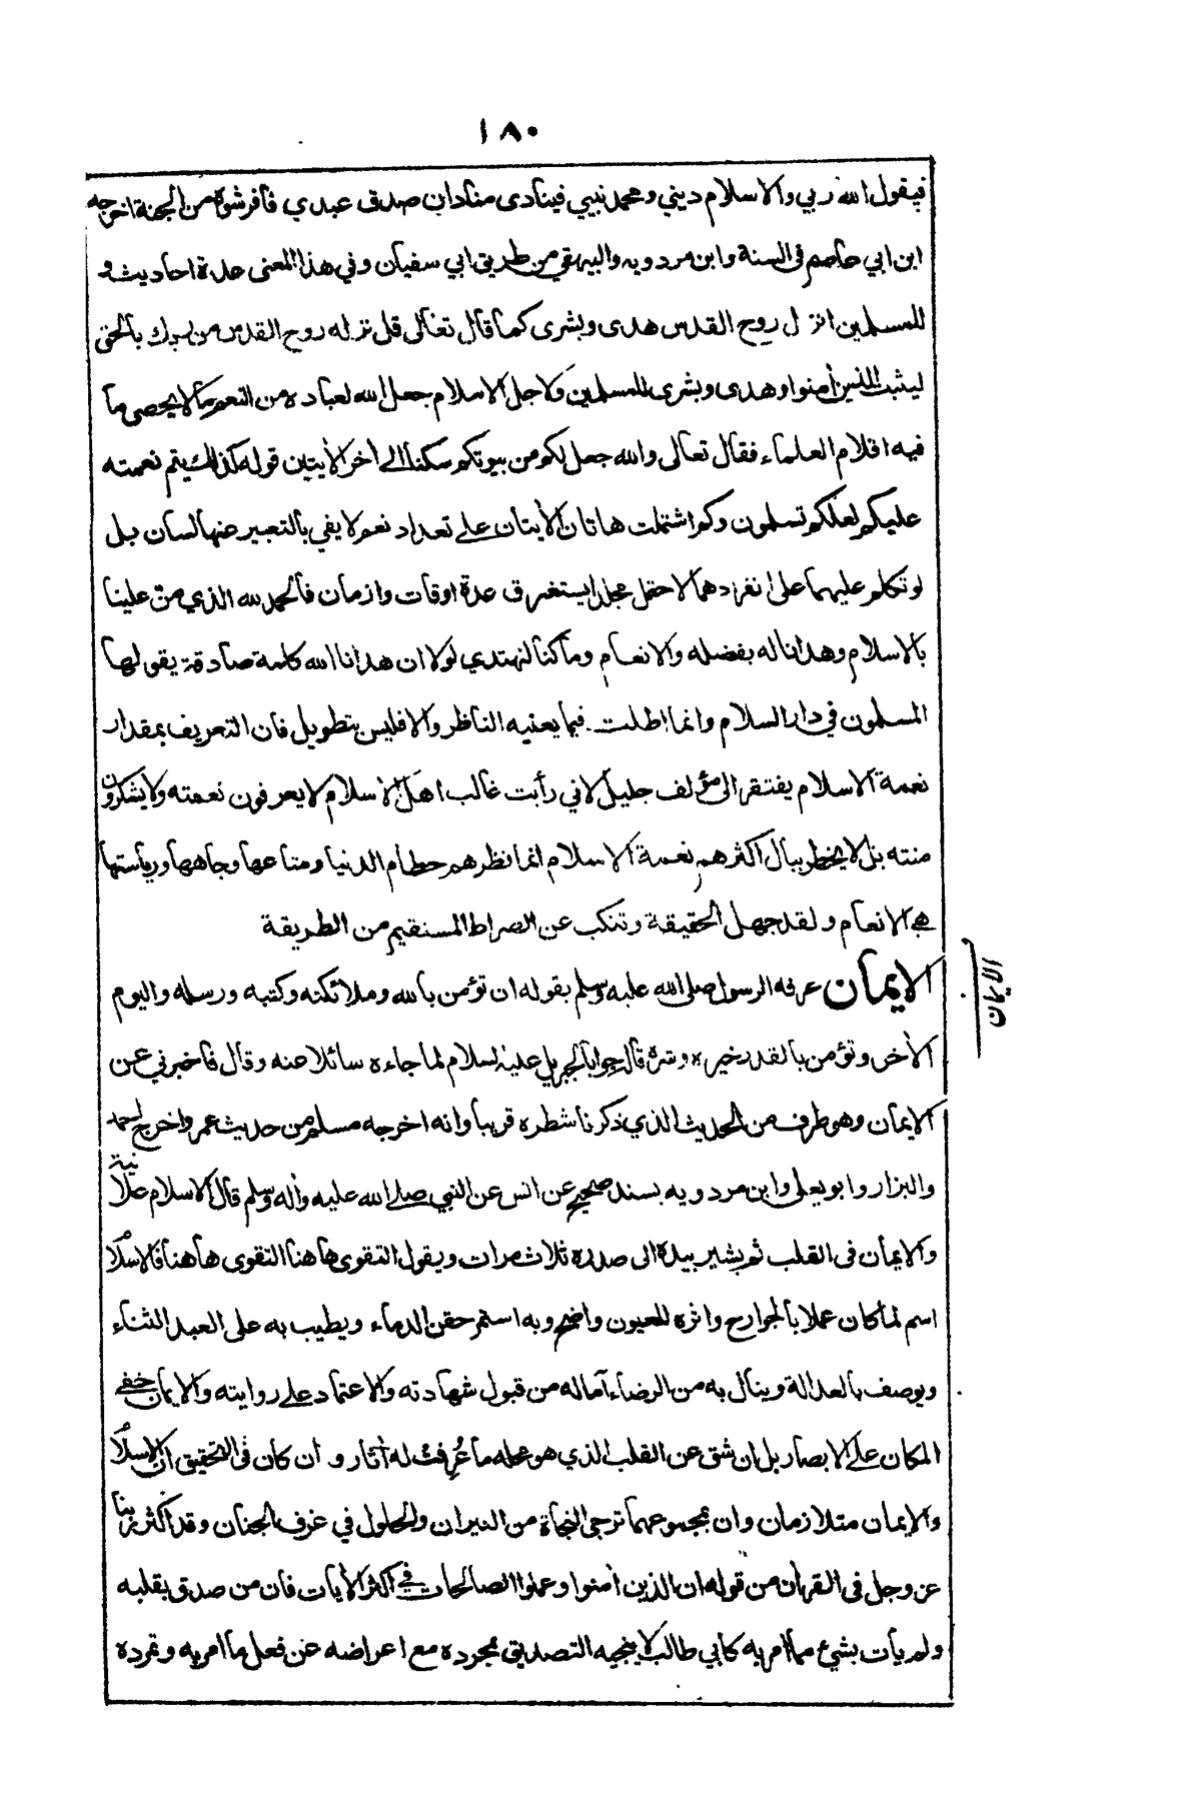 ١٨٠
فيقول الله ربي والاسلام ديني ومحمد نبيي فينادى مناد ان صدق عبدي فأفرشوه من الجنة اخرجه
ابن ابي عاصم فى السنة وابن مردويه والبيهقي من طريق ابي سفيان وفي هذا المعنى عدة احاديث و
للمسلمين انزل روح القدس هدى وبشرى كما قال تعالى قل نزله روح القدس من ربك بالحق
ليثبت الذين أمنوا وهدى وبشرى للمسلمين ولاجل الاسلام جعل الله لعباده من النعم مالا يحصى ما
فيه اقلام العلماء فقال تعالى والله جعل لكم من بيوتكم سكنا الى أخر الأيتين قوله كذلك يتم نعمته
عليكم لعلكم تسلمون وكم اشتملت هاتان الأيتان على تعداد نعم لا يفي بالتعبير عنها لسان بل
لو تكلم عليهما على انفرادهما لاحتمل مجلدا يستغرق عدة اوقات وازمان فالحمد لله الذي من علينا
بالاسلام وهدانا له بفضله والانعام وما كنا لنهتدي لولا ان هدانا الله كلمة صادقة يقولها
المسلمون في دار السلام وانما اطلت فيما يعنيه الناظر والا فليس بتطويل فان التعريف بمقدار
نعمة الاسلام يفتقر الى مؤلف جليل لاني رأيت غالب اهل الأسلام لا يعرفون نعمته ولا يشكرون
منته بل لا يخطر ببال اكثرهم نعمة الاسلام انما نظرهم حطام الدنيا ومتاعها وجاهها ورياستها
هي الانعام ولقد جهل الحقيقة وتنكب عن الصراط المستقيم من الطريقة
الايمان عرفه الرسول صلى الله عليه وسلم بقوله ان تؤمن بالله وملائكته وكتبه ورسله واليوم
الايمان
الأخر وتؤمن بالقدر خيره وشره قاله جوابا لجبريل عليه السلام لما جاءه سائلا عنه وقال فأخبرني عن
الايمان وهو طرف من الحديث الذي ذكرنا شطره قريبا وانه اخرجه مسلم من حديث عمر واخرج احمد
والبزار وابو يعلى وابن مردويه بسند صحيح عن انس عن النبي صلى الله عليه وأله وسلم قال الاسلام علانية
والايمان فى القلب ثم يشير بيده الى صدره ثلاث مرات ويقول التقوى هاهنا التقوى هاهنا فالاسلام
اسم لما كان عملا بالجوارح واثره للعيون واضح وبه استمر حقن الدماء ويطيب به على العبد الثناء
ويوصف بالعدالة وينال به من الرضاء آماله من قبول شهادته والاعتماد على روايته والايمان خفي
المكان على الابصار بل ان شق عن القلب الذي هو محله ما عُرفت له أثار وان كان فى التحقيق ان الاسلام
والايمان متلازمان وان بمجموعهما ترجى النجاة من النيران والحلول في غرف الجنان وقد اكثر ربنا
عز وجل فى القرأن من قوله ان الذين أمنوا وعملوا الصالحات في اكثر الأيات فان من صدق بقلبه
ولم يأت بشيء مما امر به كابي طالب لا ينجيه التصديق بمجرده مع اعراضه عن فعل ما امر به وتمرده